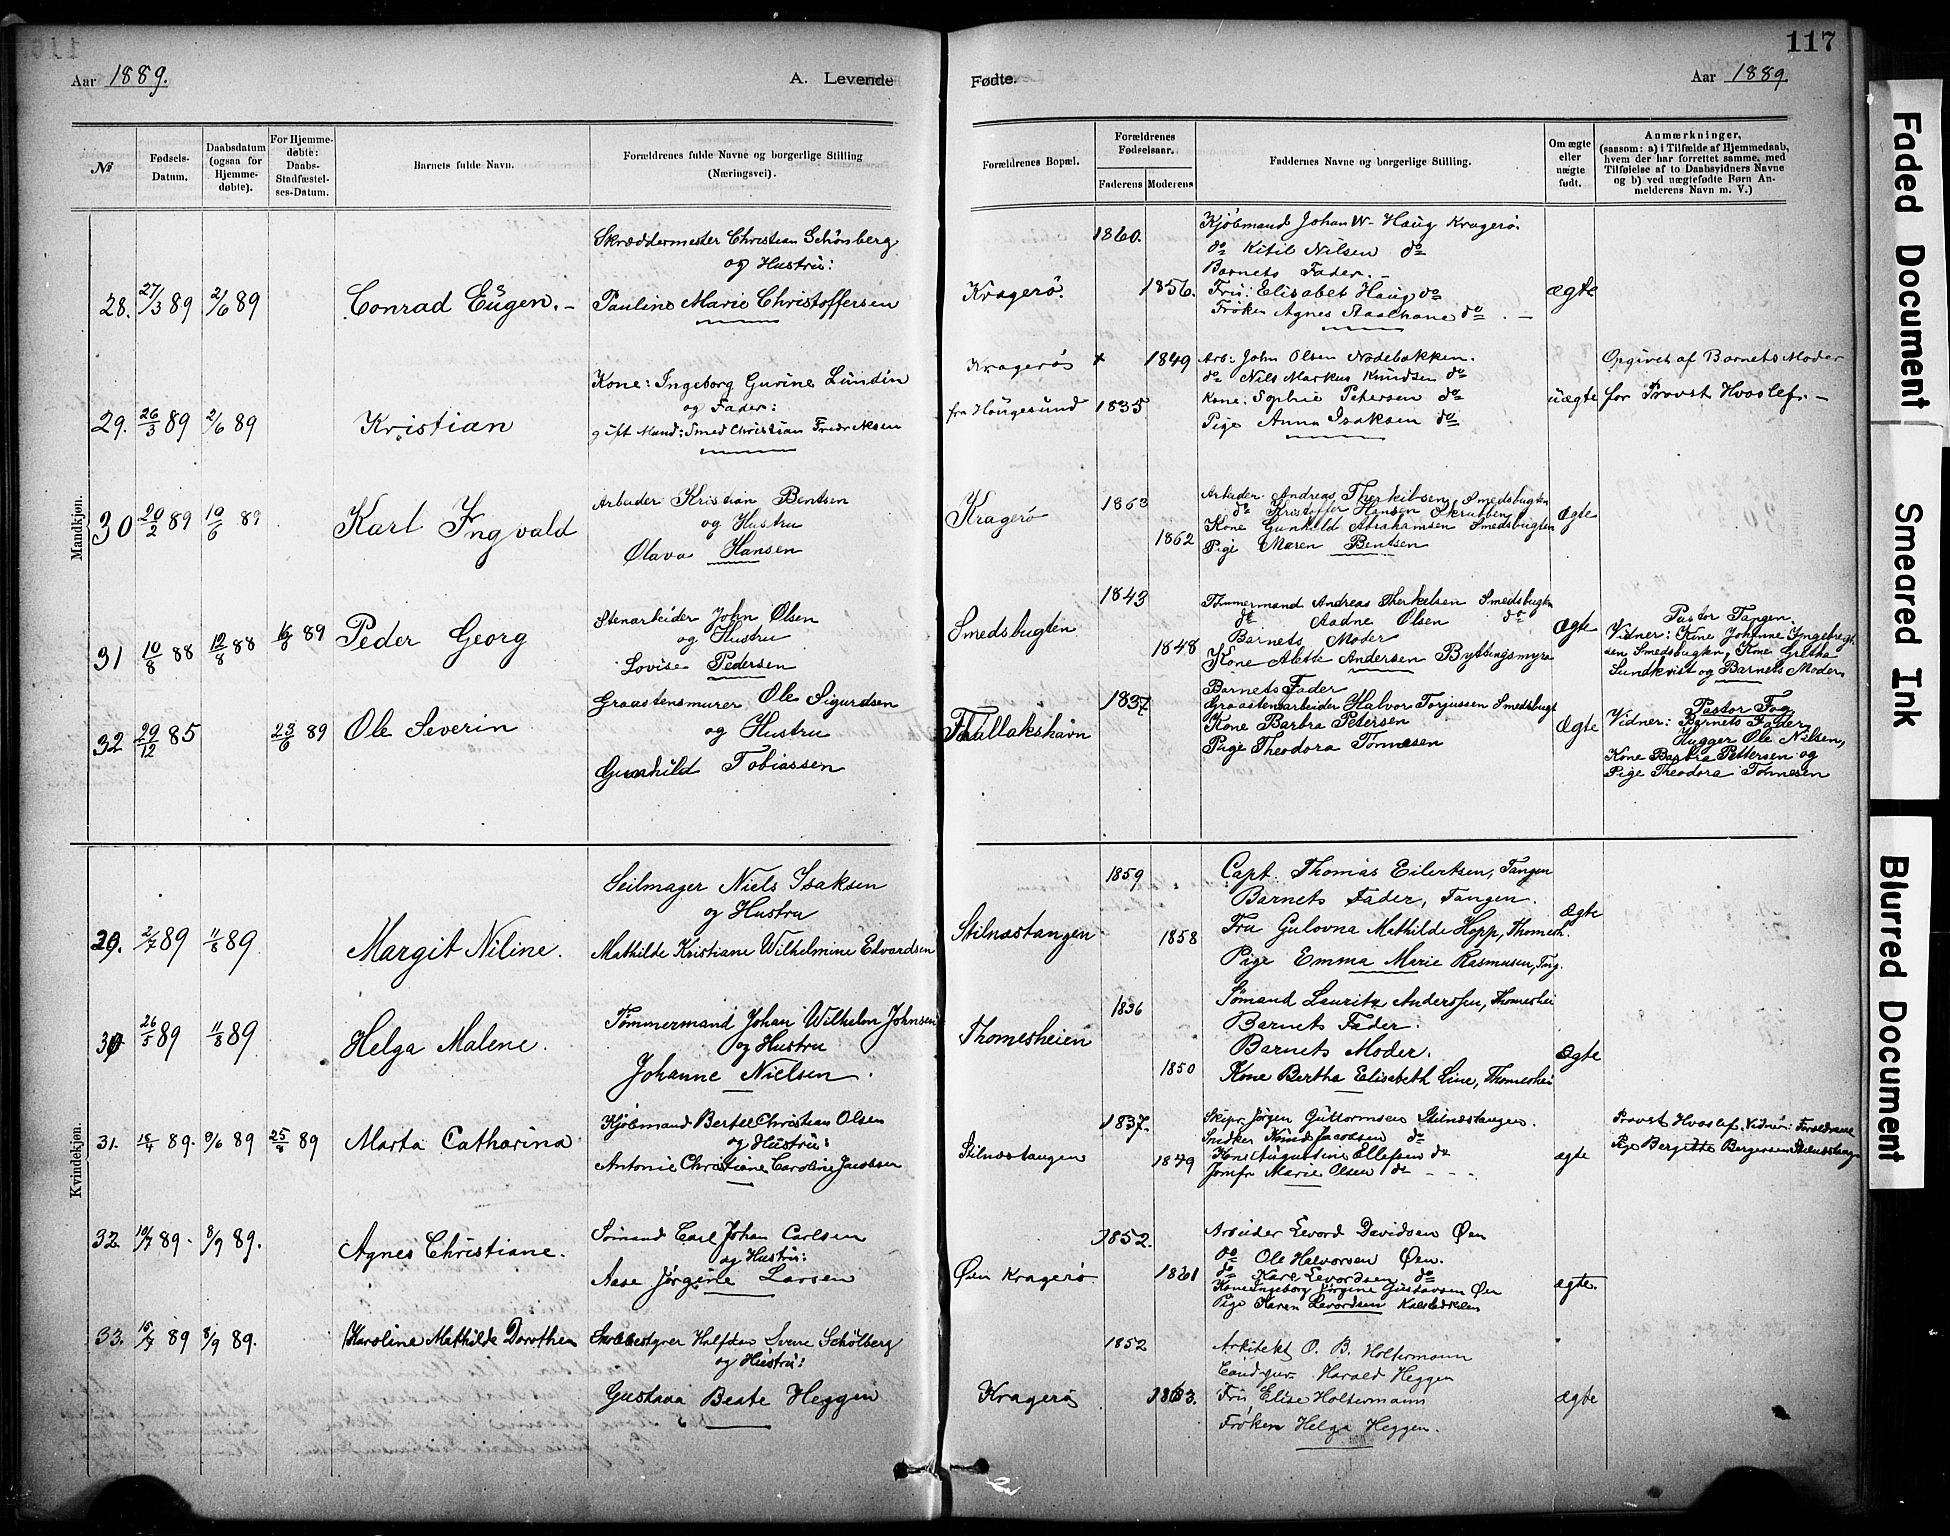 117
Aar 1889.
A. Levende
Fødte.
Aar 1889
№
Fødsels-Datum.
Daabsdatum (ogsaa for Hjemme-døbte).
For Hjemme-døbte: Daabs-Stadfæstel-ses-Datum.
Barnets fulde Navn.
Forældrenes fulde Navne og borgerlige Stilling (Næringsvei).
Forældrenes Bopæl.
Forældrenes Fødselsaar.
Faderens Moderens
Faddernes Navne og borgerlige Stilling.
Om ægte eller uægte født.
Anmærkninger,
(saasom: a) i Tilfælde af Hjemmedaab,
hvem der har forrettet samme, med
Tilføielse af to Daabsvidners Navne
og b) ved uægtefødte Børn An-
melderens Navn m. V.)
Mandkjøn.
28. 27/3 89 2/6 89 Conrad Eugen. -
Skræddermester Christian Schönberg
og Hustru:
Pauline Marie Christoffersen
Kragerø. 1860. 1856.
Kjøbmand Johan W. Haug Kragerø.
do Kitil Nilsen do
Barnets Fader. -
Fru: Elisabet Haug do
Frøken Agnes Staalhane do. -
ægte
29. 26/3 89 2/6 89 Kristian
Kone: Ingeborg Gurine Lundin
og Fader:
gift Mand: Smed Christian Fredriksen
Kragerø + 1849
fra Haugesund 1835
Arb: John Olsen Nodebakken.
do Nils Markus Knudsen do
Kone: Sophie Petersen do
Pige Anna Isaksen do
uægte
Opgivet af Barnets Moder
for Provst Hvoslef. -
30 20/2 89 10/6 89 Karl Ingvald
Arbeider Kristian Bentsen
og Hustru
Olava Hansen
Kragerø 1863 1862
Arbeider Andreas Therkilsen Smedsbugten
do Kristoffer Hansen Skrubben
Kone Gunhild Abrahamsen Smedsbugten
Pige Maren Bentsen
Ægte
31 10/8 88 12/8 88 89 Peder Georg
Stenarbeider John Olsen
og Hustru
Lovise Pedersen
Smedsbugten 1843 1848
Tømmermand Andreas Therkelsen Smedsbugten
do Aadne Olsen do
Barnets Moder
Kone Alette Andersen Byttingsmyra
Ægte
Pastor Tangen.
Vidner: Kone Johanne Ingebregt-
sen Smedsbugten, Kone Gretha
Sundkvist og Barnets Moder
32 29/12 85 23/6 89 Ole Severin
Graastensmurer Ole Sigurdsen
og Hustru
Gunhild Tobiassen
Thullakshavn 1837
Barnets Fader
Graastensarbeider Halvor Torjussen Smedsbugt
Kone Barbra Petersen
Pige Theodora Tønnesen
Ægte
Pastor Fog
Vidner: Barnets Fader,
Hugger Ole Nilsen,
Kone Barbra Pettersen og
Pige Theodora Tønnesen
Kvindekjøn.
29. 2/7 89 11/8 89 Margit Niline.
Seilmager Niels Isaksen
og Hustru
Mathilde Kristiane Wilhelmine Edvardsen
Stilnæstangen 1859 1858
Capt. Thomas Eilertsen, Tangen
Barnets Fader, Tangen.
Fru Gulovna Mathilde Hopp, Thomesh.
Pige Emma Marie Rasmusen, Tng.
Ægte
30 26/5 89 11/8 89 Helga Malene.
Tømmermand Johan Wilhelm Johnsen
og Hustru
Johanne Nielsen.
Thomesheien 1836 1850
Sømand Lauritz Anderssen, Thomeshei
Barnets Fader.
Barnets Moder.
Kone Bertha Elisabeth Line, Thomeshei
Ægte
31. 18/4 89. 9/6 89 25/8 89 Marta Catharina
Kjøbmand Bertel Christian Olsen
og Hustru:
Antonie Christiane Caroline Jacobsen
Stilnæstangen 1837. 1849
Skipr. Jørgen Guttormsen Stilnæstangen.
Snedker Knud Jacobsen do
Kone Augustine Ellefsen do
Jomfr Marie Olsen do - - -
ægte
Provst Hvoslef. Vidner: Forældrene
Pige Bergitte Bergersen Stilnæstang
32. 19/7 89. 8/9 89. Agnes Christiane.
Sømand Carl Johan Carlsen
og Hustru:
Aase Jørgine Larsen
Øen Kragerø 1852. 1861
Arbeider Evord Davidsen Øen
do Ole Halvorsen Øen.
do Karl Evordsen do
Kone Ingeborg Jørgine Gustavsen Øen
Pige Karen Levordsen Kalstadkilen
ægte.
33. 15/7 89 8/9 89. Karoline Mathilde Dorothea
Skolebestyrer Halfdan Svane Schölberg
og Hustru:
Gustava Beate Heggen
Kragerø 1852 1863.
Arkitekt O. B. Holtermann
Harald Heggen
Fru Elise Holtermann
Frøken Helga Heggen.
ægte
Faded Document
Smeared Ink
Blurred Document